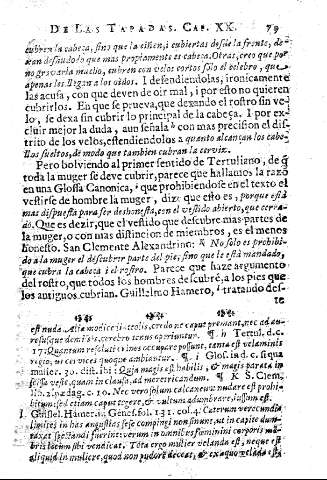 DE LAS TAPADAS. CAP. XX. 79
cubren la cabeça, sino que la ciñen, i cubiertas desde la fronte, de-
xan desnudo lo que mas propiamente es cabeça. Otras, creo que por
no gravarla mucho, cubren con velos cortos solo el celebro, que
apenas les llegan a los oìdos. I defendiendolas, ironicamente
las acusa, con que deven de oir mal, i por esto no quieren
cubrirlos. En que se prueva, que dexando el rostro sin ve-
lo, se dexa sin cubrir lo principal de la cabeça. I por ex-
cluir mejor la duda, aun señala h con mas precision el dis-
trito de los velos, estendiendolos a quanto alcançan los cabe-
llos sueltos, de modo que tambien cubran la cerviz.
Pero bolviendo al primer sentido de Tertuliano, de q̃
toda la muger se deve cubrir, parece que hallamos la razõ
en una Glossa Canonica, i que prohibiendose en el texto el
vestirse de hombre la muger, dize que esto es, porque està
mas dispuesta para ser deshonesta, con el vestido abierto, que cerra-
do. Que es dezir, que el vestido que descubre mas partes de
la muger, o con mas distincion de miembros, es el menos
honesto. San Clemente Alexandrino: K No solo es prohibi-
do a la muger el descubrir parte del pie, sino que le està mandado,
que cubra la cabeça i el rostro. Parece que haze argumento
del rostro, que todos los hombres descubrẽ, a los pies que
los antiguos cubrian. Guillelmo Hamero, l tratando des-
te
est nuda. Aliæ modicis linteolis, credo ne caput premant, nec ad au-
res usque demissis, cerebro tenus operiuntur. ¶ h Tertul. d. c.
17. Quantum resoluti crines occupare possunt, tanta est velaminis
regio, ut cervices quoque ambiantur. ¶ i Glos. in d. c. siqua
mulier. 30. dist. ibi: Quia magis est habilis, & magis parata in
scissa veste, quam in clausa, ad meretricandum. ¶ K S. Clem.
lib. 2. pædag. c. 10. Nec vero solum calcaneum nudare est prohi-
bitum: sed etiam caput tegere, & vultum adumbrare, iussum est.
l Guillel. Hamer. in Genes. fol. 131. col. 4. Cæterum verecundia
limites in has angustias sese compingi non sinunt, ut in capite dum-
taxat spectandi fuerint: verum in omnibus fœminini corporis mẽ-
bris locum sibi vendicat. Tota ergo mulier velanda est, neque est
aliquid in muliere, quod non pudore deceat, & ex a quo velada est: